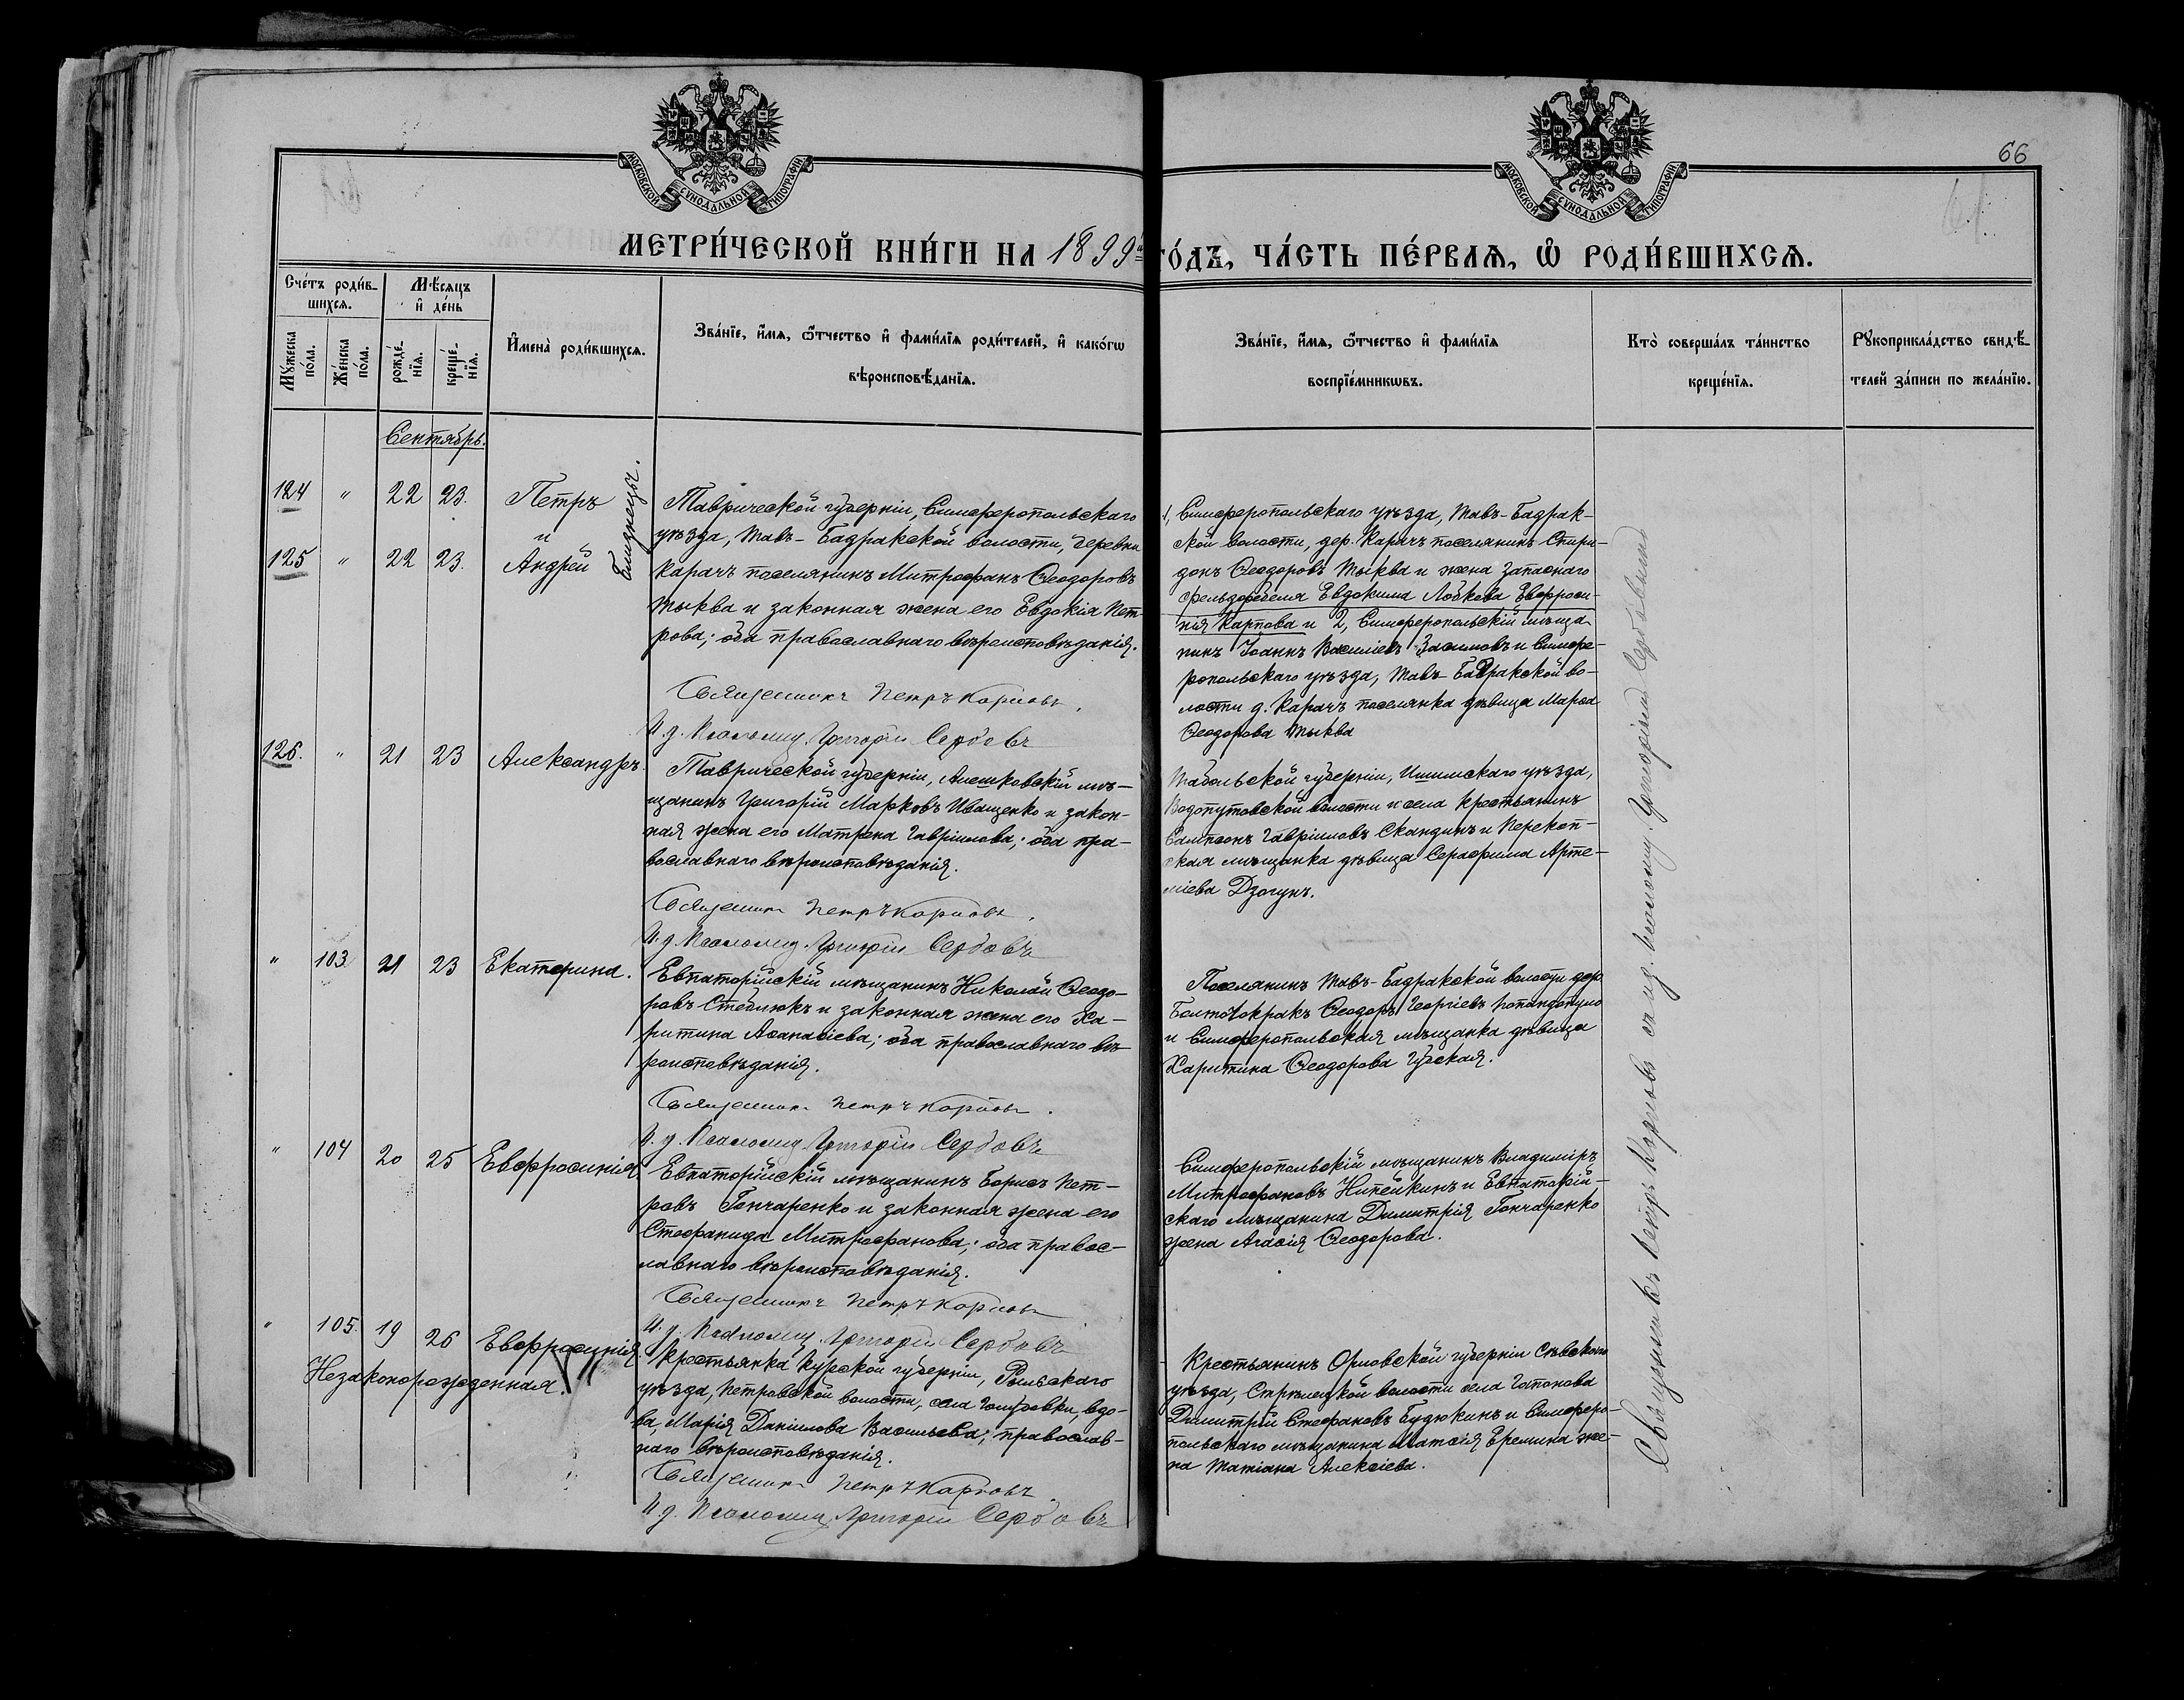 МОСКОВСКОЙ СѴНОДАЛЬНОЙ ТИПОГРАФІИ
МОСКОВСКОЙ СѴНОДАЛЬНОЙ ТИПОГРАФІИ
66
МЕТРИ́ЧЕСКОЙ КНИ́ГИ НА 1899й ГО́ДЪ, ЧА́СТЬ ПЕ́РВАѦ, Ѡ҆ РОДИ́ВШИХСѦ.
Сче́тъ роди́в-
шихсѧ.
Мꙋ́жеска по́ла.
Же́нска по́ла.
Мѣ́сяцъ
и҆ де́нь
рожде́-
нїѧ.
креще́-
нїѧ.
И҆мена̀ роди́вшихсѧ.
Зва́нїе, и҆́мѧ, ѻ҆́тчество и҆ фами́лїѧ роди́телей, и҆ како́гѡ
вѣроисповѣ́данїѧ.
Зва́нїе, и҆́мѧ, ѻ҆́тчество и҆ фами́лїѧ
воспрїе́мникѡвъ.
Кто̀ соверша́лъ та́инство
креще́нїѧ.
Рꙋкоприкла́дство свидѣ́-
телей за́писи по жела́нїю.
Сентябрь.
124 " 22 23. Петръ
и
125 " 22 23. Андрей
Близнецы.
Таврической губерніи, Симферопольскаго
уѣзда, Тавъ-Бадракской волости, деревни
Карачъ поселянинъ Митрофанъ Ѳеодоровъ
Тыква и законная жена его Евдокія Пет-
рова; оба православнаго вѣроисповѣданія.
Священникъ Петръ Карповъ.
И. д. Псаломщ. Григорій Сербовъ
1, Симферопольскаго уѣзда, Тавъ-Бадрак-
ской волости, дер. Карачъ поселянинъ Спири-
донъ Ѳеодоровъ Тыква и жена запаснаго
фельдфебеля Евдокима Лобкова Евфроси-
нія Карпова и 2, Симферопольскій мѣща-
нинъ Іоаннъ Василіевъ и Симфе-
ропольскаго уѣзда, Тавъ-Бадракской во-
лости д. Карачъ поселянка дѣвица Марѳа
Ѳеодорова Тыква
126. " 21 23 Александръ.
Таврической губерніи, Алешковскій мѣ-
щанинъ Григорій Марковъ Иващенко и закон-
ная жена его Матрена Гавріилова; оба пра-
вославнаго вѣроисповѣданія.
Священникъ Петръ Карповъ.
И. д. Псаломщ. Григорій Сербовъ
Тобольской губерніи, Ишимскаго уѣзда,
волости и села крестьянинъ
Сампсонъ Гавріиловъ Скандинъ и Перекоп-
ская мѣщанка дѣвица Серафима Арте-
міева Дзогунъ.
" 103. 21 23 Екатерина.
Евпаторійскій мѣщанинъ Николай Ѳеодо-
ровъ Стеблюкъ и законная жена его Ха-
ритина Аѳанасіева; оба православнаго вѣ-
роисповѣданія.
Священникъ Петръ Карповъ.
И. д. Псаломщ. Григорій Сербовъ
Поселянинъ Тавъ-Бадракской волости дер.
Ѳеодоръ Георгіевъ Попандопуло
и Симферопольская мѣщанка дѣвица
Харитина Ѳеодорова Губская.
" 104 20 25 Евфросинія.
Евпаторійскій мѣщанинъ Борисъ Пет-
ровъ Гончаренко и законная жена его
Стефанида Митрофанова; оба правос-
лавнаго вѣроисповѣданія.
Священникъ Петръ Карповъ
И. д. Псаломщ. Григорій Сербовъ
Симферопольскій мѣщанинъ Владиміръ
Митрофановъ Нипейкинъ и Евпаторій-
скаго мѣщанина Димитрія Гончаренко
жена Агаѳія Ѳеодорова.
" 105. 19 26 Евфросинія.
Незаконорожденная.
Крестьянка Курской губерніи, Рыльскаго
уѣзда, Петровской волости, села Голубовки, вдо-
ва, Марія Даніилова Васильева; православ-
наго вѣроисповѣданія.
Священникъ Петръ Карповъ.
И. д. Псаломщ. Григорій Сербовъ
Крестьянинъ Орловской губерніи Сѣвскаго
уѣзда, Стрѣлецкой волости села Гапонова
Димитрій Стефановъ Будюкинъ и Симферо-
польскаго мѣщанина Матѳія Еремина же-
на Татіана Алексіева.
Священникъ Петръ Карповъ съ и. д. псаломщ. Григоріемъ Сербовымъ